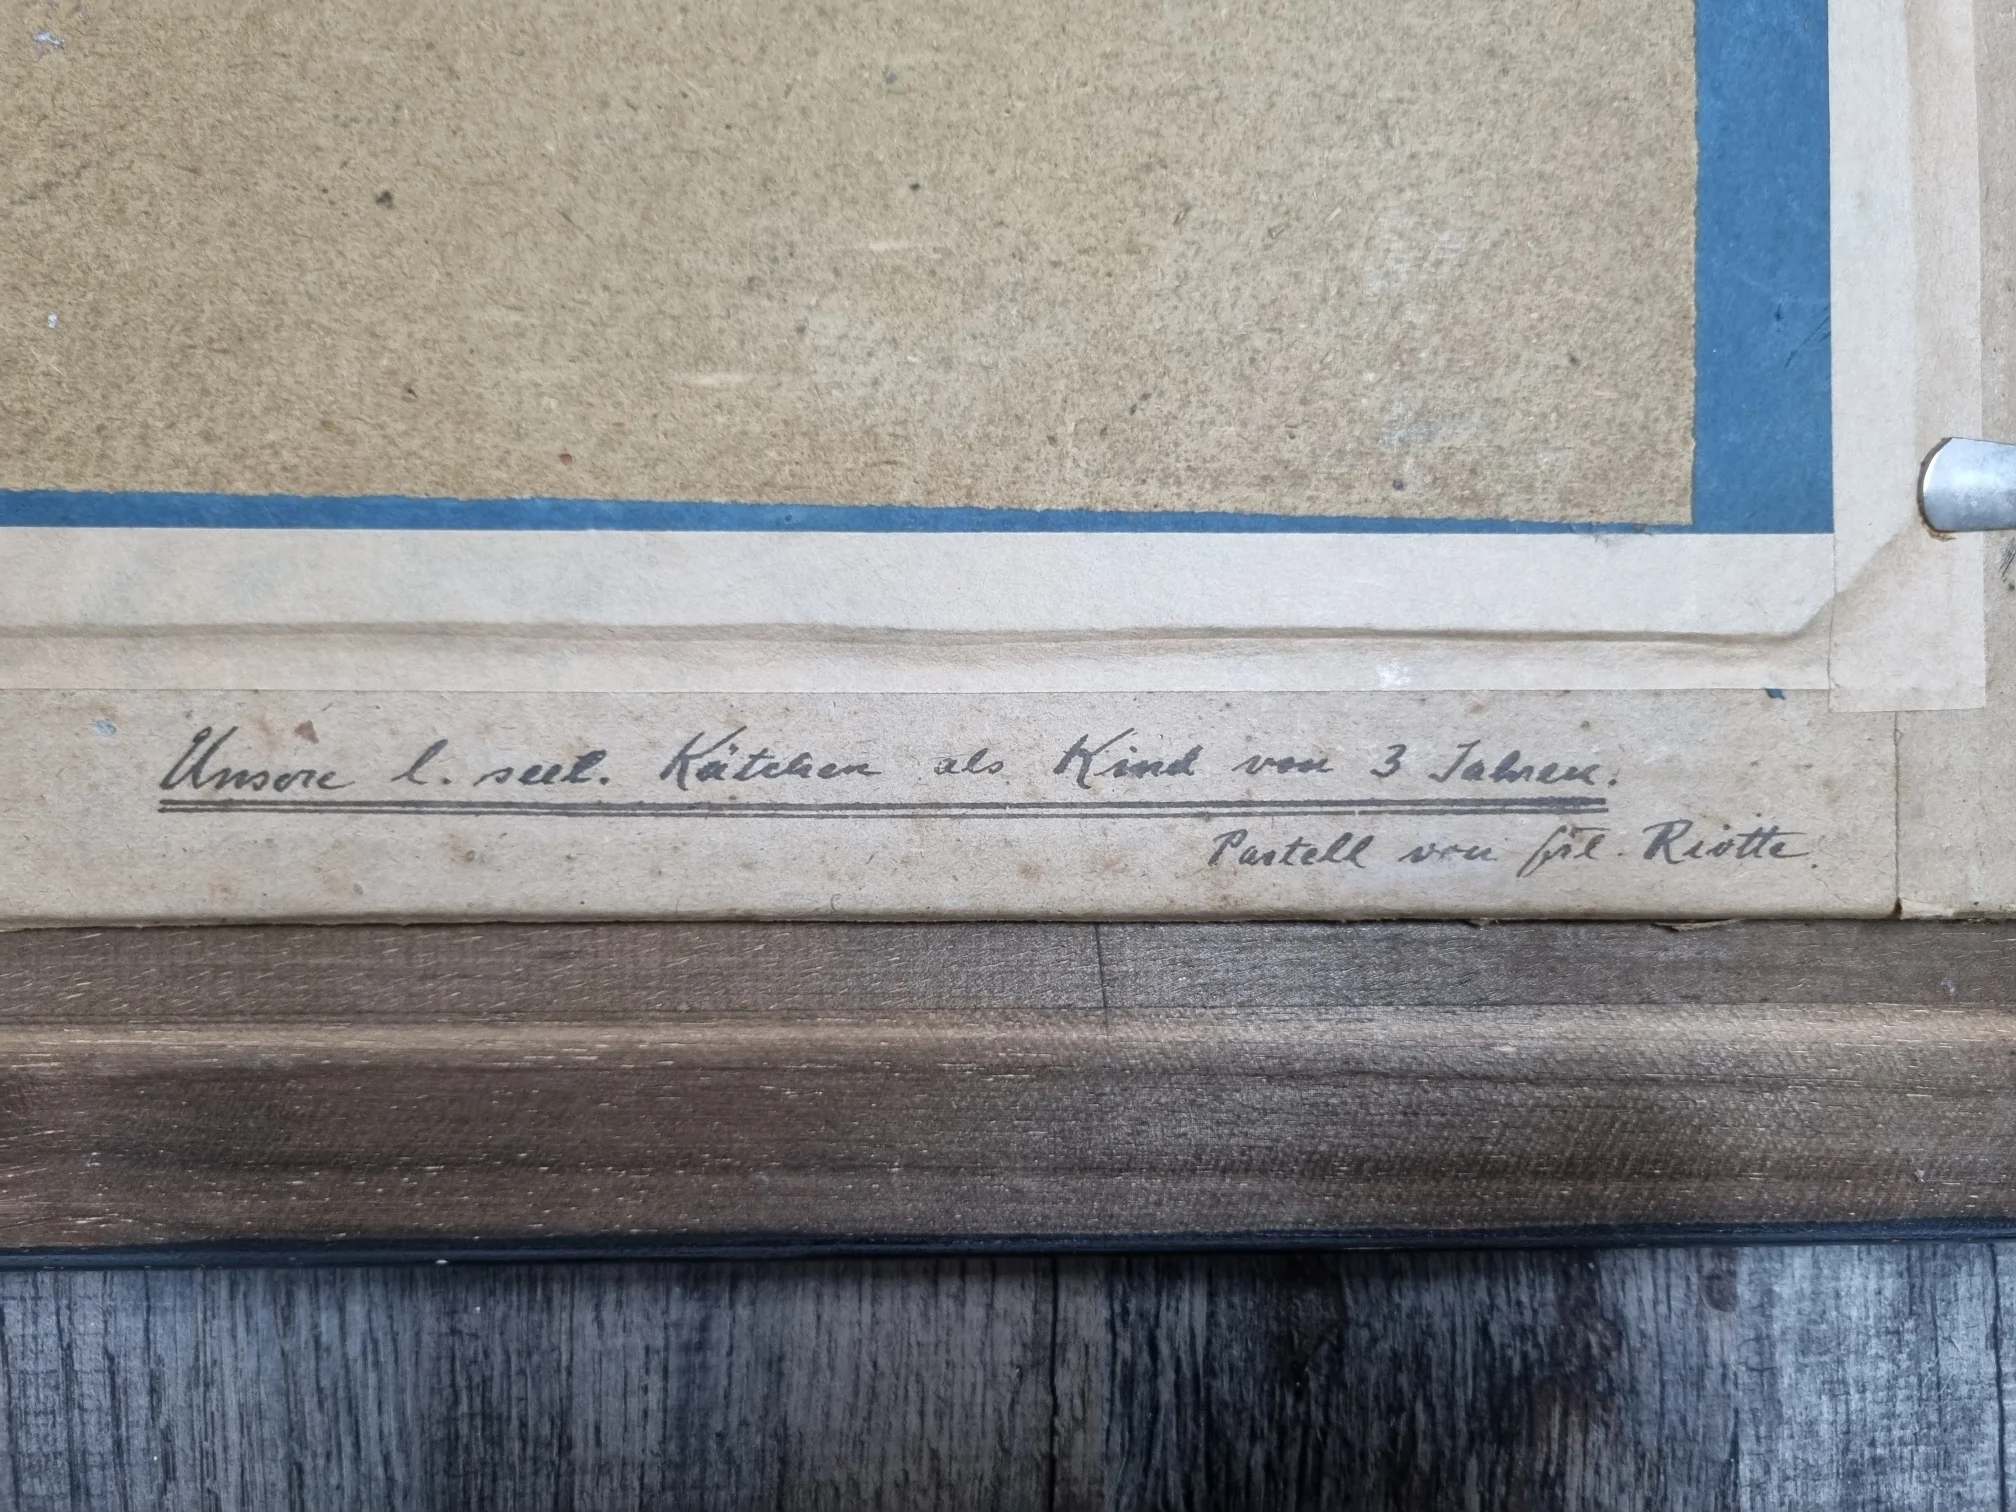 Unsere l. seel. Kätchen als Kind von 3 Jahren.
Pastell von Frl. Riotte.